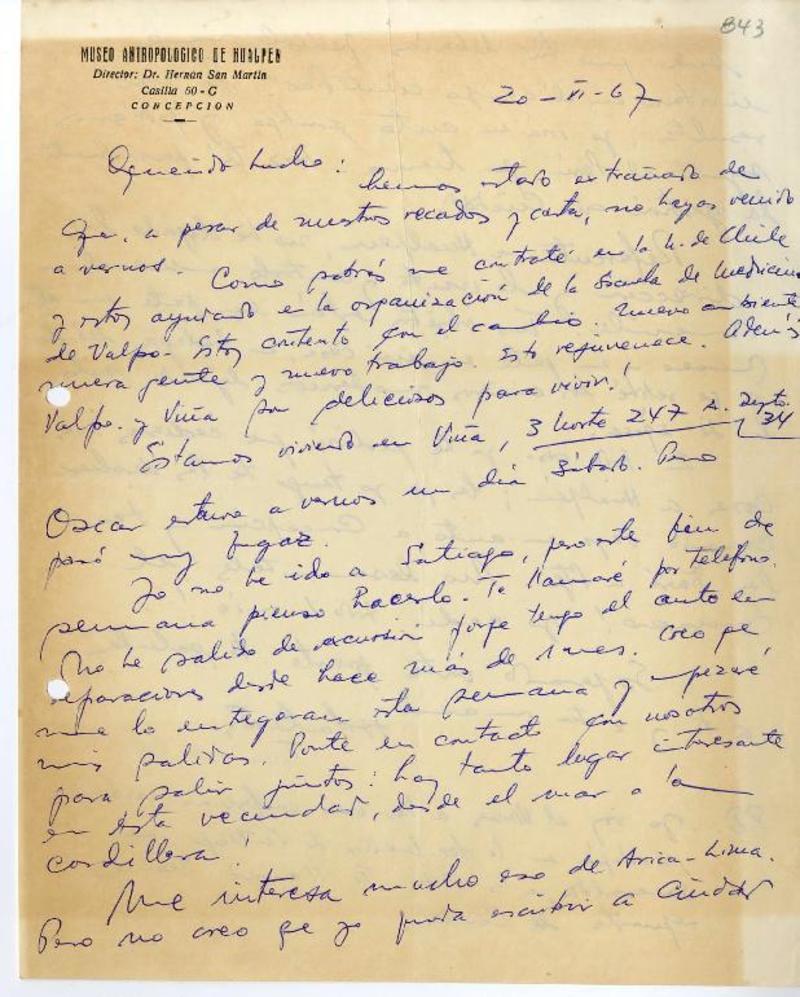 843
MUSEO ANTROPOLOGICO DE HUALPEN
Director: Dr. Hernan San Martin
Casilla 60 - G
CONCEPCION
20 - VI - 67
Querido Lucho:
hemos estado extrañado de
que, a pesar de nuestros recados y carta, no hayas venido
a vernos. Como sabrás me contraté en la U. de Chile
y estoy ayudando en la organización de la Escuela de Medicina
de Valpo. Estoy contento con el cambio. Nuevo ambiente
nueva gente y nuevo trabajo. Esto rejuvenece. Además
Valpo. y Viña son deliciosos para vivir!
Estamos viviendo en Viña, 3 Norte 247 A. Depto.
34
Oscar estuvo a vernos un día Sábado. Pero
pasó muy fugaz.
Yo no he ido a Santiago, pero este fin de
semana pienso hacerlo. Te llamaré por teléfono.
No he salido de excursión porque tengo el auto en
reparaciones desde hace más de 1 mes. Creo que
me lo entregaran esta semana y empezaré
mis salidas. Ponte en contacto con nosotros
para salir juntos: hay tanto lugar interesante
en esta vecindad, desde el mar a la
cordillera!
Me interesa mucho eso de Arica-Lima.
Pero no creo que yo pueda escribir a Ciudad